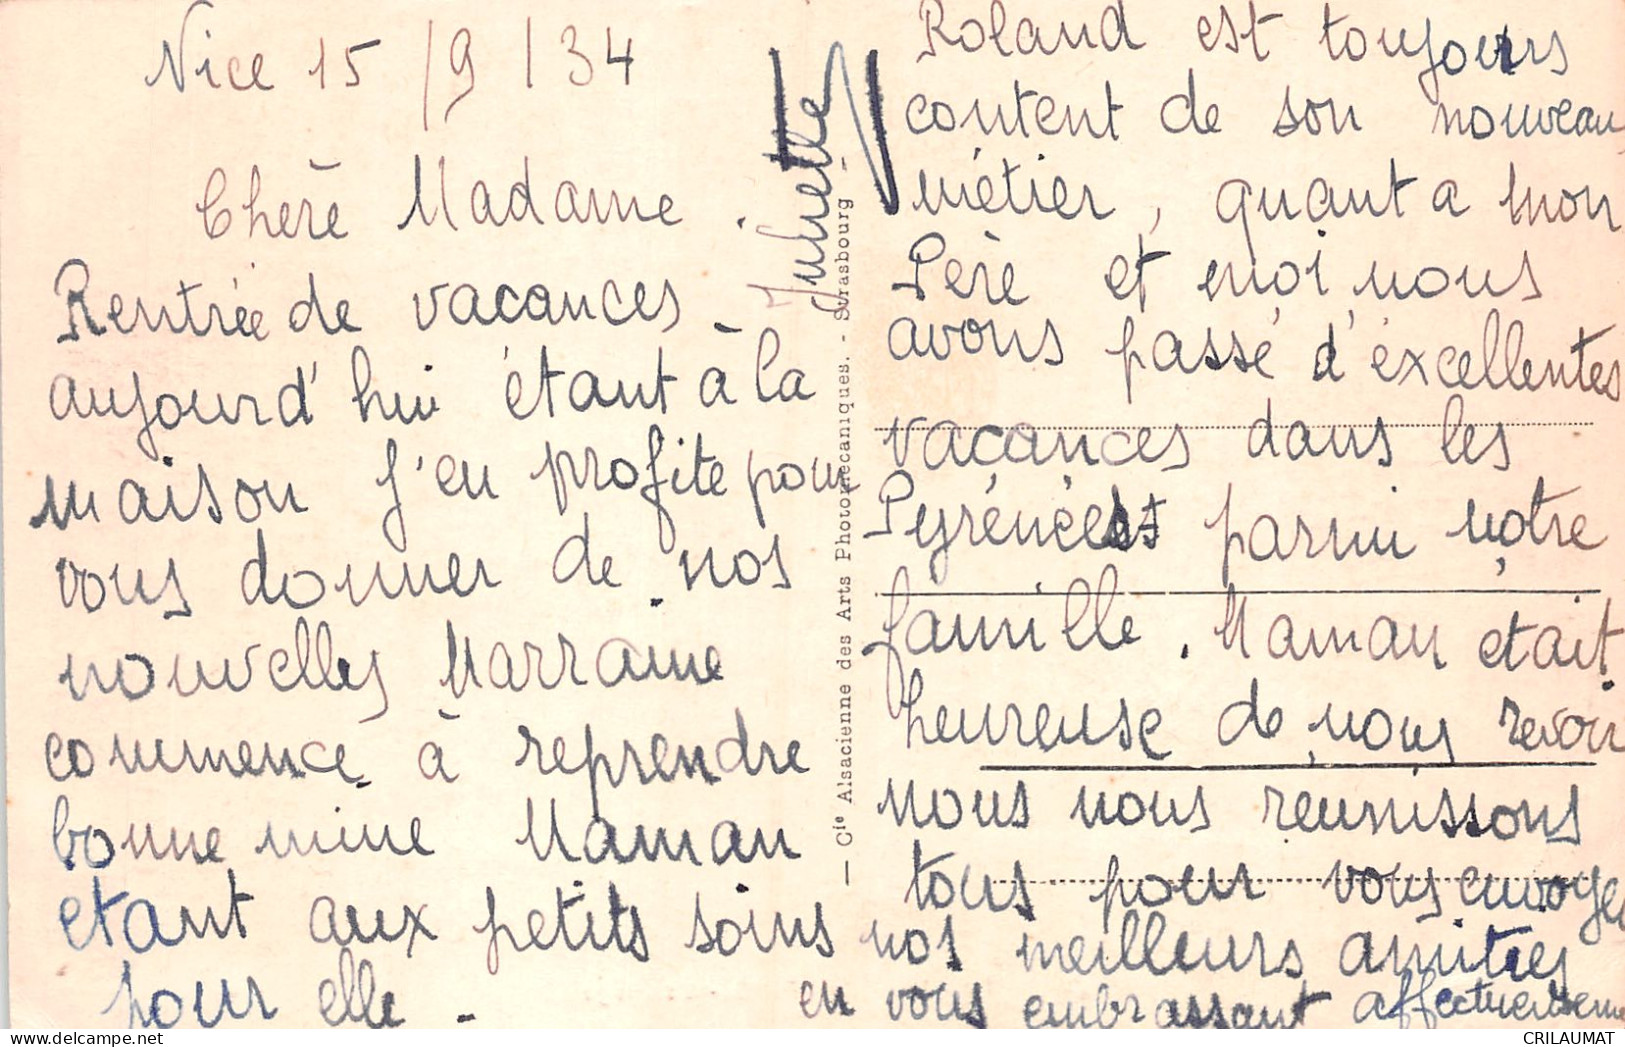 Nice 15/9/34
Chère Madame.
Rentrée de vacances
aujourd'hui étant à la
maison j'en profite pour
vous donner de nos
nouvelles Marraine
commence à reprendre
bonne mine Maman
etant aux petits soins
pour elle.
Roland est toujours
content de son nouveau
métier, quant a mon
Père et moi nous
avons passé d'éxcellentes
vacances dans les
Pyrénées parmi nôtre
famille. Maman etait
heureuse de nous revoir
nous nous reunissons
tous pour vous envoyer
nos meilleurs amities
en vous embrassant affectueusement
Juliette
— Cie Alsacienne des Arts Photomécaniques. - Strasbourg —
CRILAUMAT